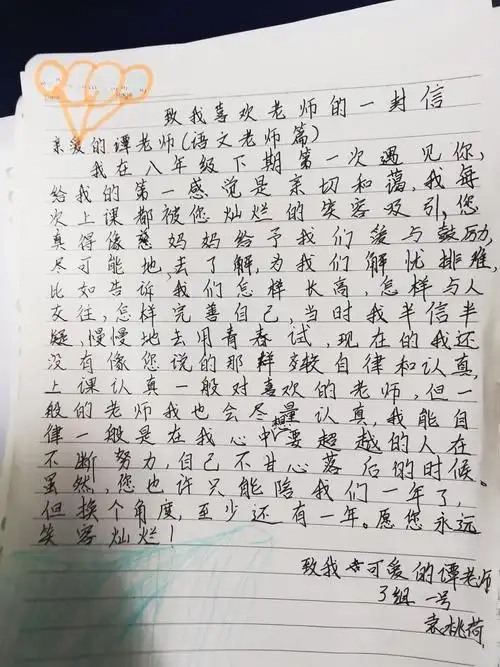 致我喜欢老师的一封信
亲爱的谭老师(语文老师篇)
我在八年级下期第一次遇见你,
给我的第一感觉是亲切和蔼,我每
次上课都被您灿烂的笑容吸引,您
真得像慈妈妈给予我们爱与鼓励,
尽可能地,去了解,为我们解忧排难,
比如告诉我们怎样长高,怎样与人
交往,怎样完善自己,当时我半信半
疑,慢慢地去用青春试,现在的我还
没有像您说的那样自律和认真,
上课认真一般对喜欢的老师,但一
般的老师我也会尽量认真,我能自
律一般是在我心中想要超越的人在
不断努力,自己不甘心落后的时候。
虽然,您也许只能陪我们一年了,
但换个角度,至少还有一年。愿您永远
笑容灿烂!
致我可爱的谭老师
3组一号
袁桃荷